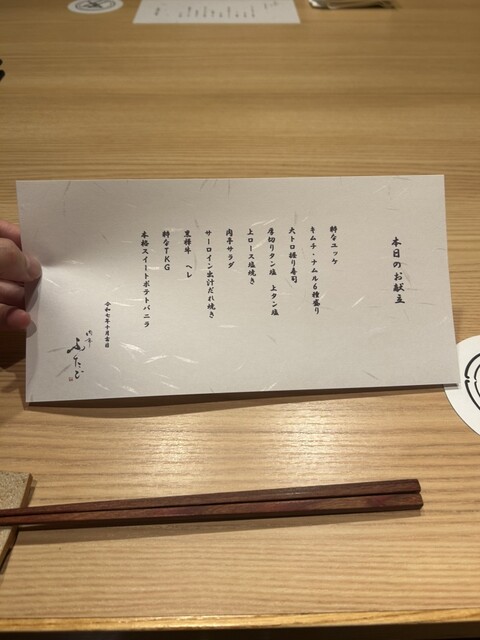 本日のお献立
粋なユッケ
キムチ・ナムル6種盛り
大トロ握り寿司
厚切りタン塩 上タン塩
上ロース塩焼き
肉亭サラダ
サーロイン出汁だれ焼き
黒樺牛 ヘレ
粋なTKG
本格スイートポテトバニラ
令和七年十月吉日
肉亭
ふたご